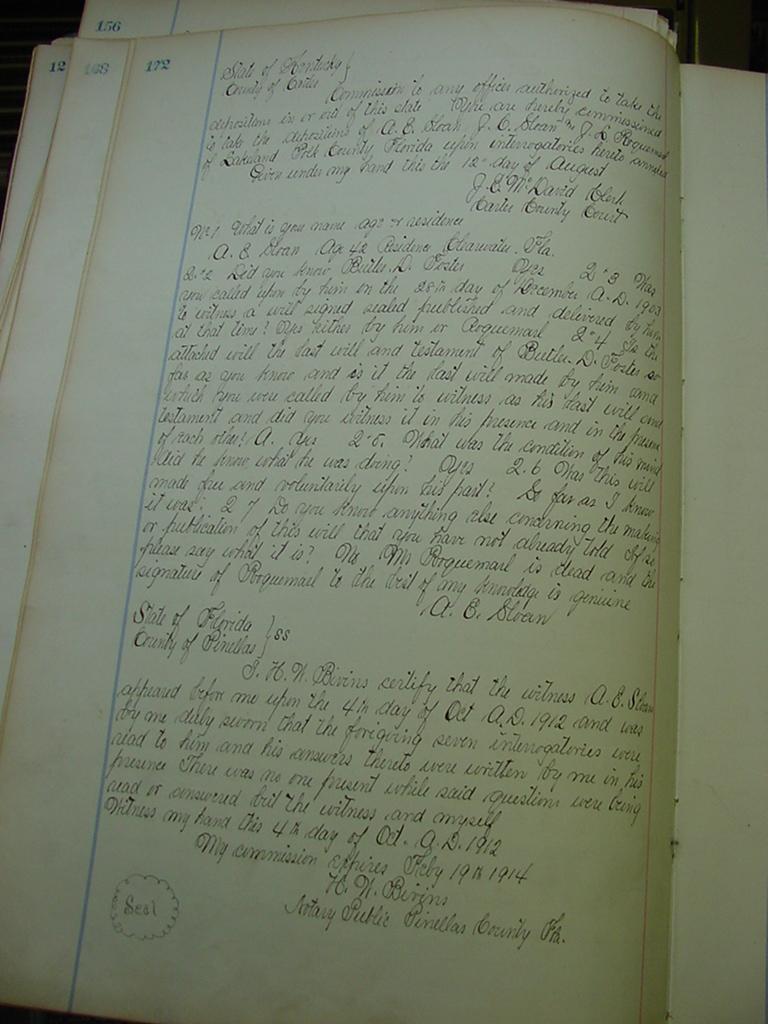 156
12 168 172
State of Kentucky }
County of Carter
Commission to any officer authorized to take the
depositions in or out of this state You are hereby commissioned
to take the depositions of A. E. Sloan J. C. Sloan J. L. Roquemarl
of Lakeland Polk County Florida upon interrogatories hereto annexed
Given under my hand this the 12" day of August
J. E. McDavid Clerk
Carter County Court
No 1 What is your name age & residence
A. E. Sloan Age 42 Residence Clearwater Fla.
2"2 Did you know Butler D. Foster Yes 2"3 Was
you called upon by him on the 28th day of December A. D. 1903
to witness a will signed sealed published and delivered by him
at that time? Yes either by him or Roquemarl 2"4 Is the
attached will the last will and testament of Butler D. Foster so
far as you know and is it the last will made by him and
which you were called by him to witness as his last will and
testament and did you witness it in his presence and in the presence
of each other? A. Yes 2-5. What was the condition of his mind
did he know what he was doing? Yes 2.6 Was this will
made free and voluntarily upon his part? So far as I know
it was. 2 7 Do you know anything else concerning the making
or publication of this will that you have not already told If so
please say what it is? No Mr Roquemarl is dead and the
signature of Roquemarl to the best of my knowledge is genuine
A. E. Sloan
State of Florida } ss
County of Pinellas
I. H. W. Bivins certify that the witness A. E. Sloan
appeared before me upon the 4th day of Oct A. D. 1912 and was
by me duly sworn that the foregoing seven interrogatories were
read to him and his answers thereto were written by me in his
presence There was no one present while said questions were being
read or answered but the witness and myself
Witness my hand this 4th day of Oct. A. D. 1912
My commission expires Feby 19th 1914
H. W. Bivins
Notary Public Pinellas County Fla.
Seal